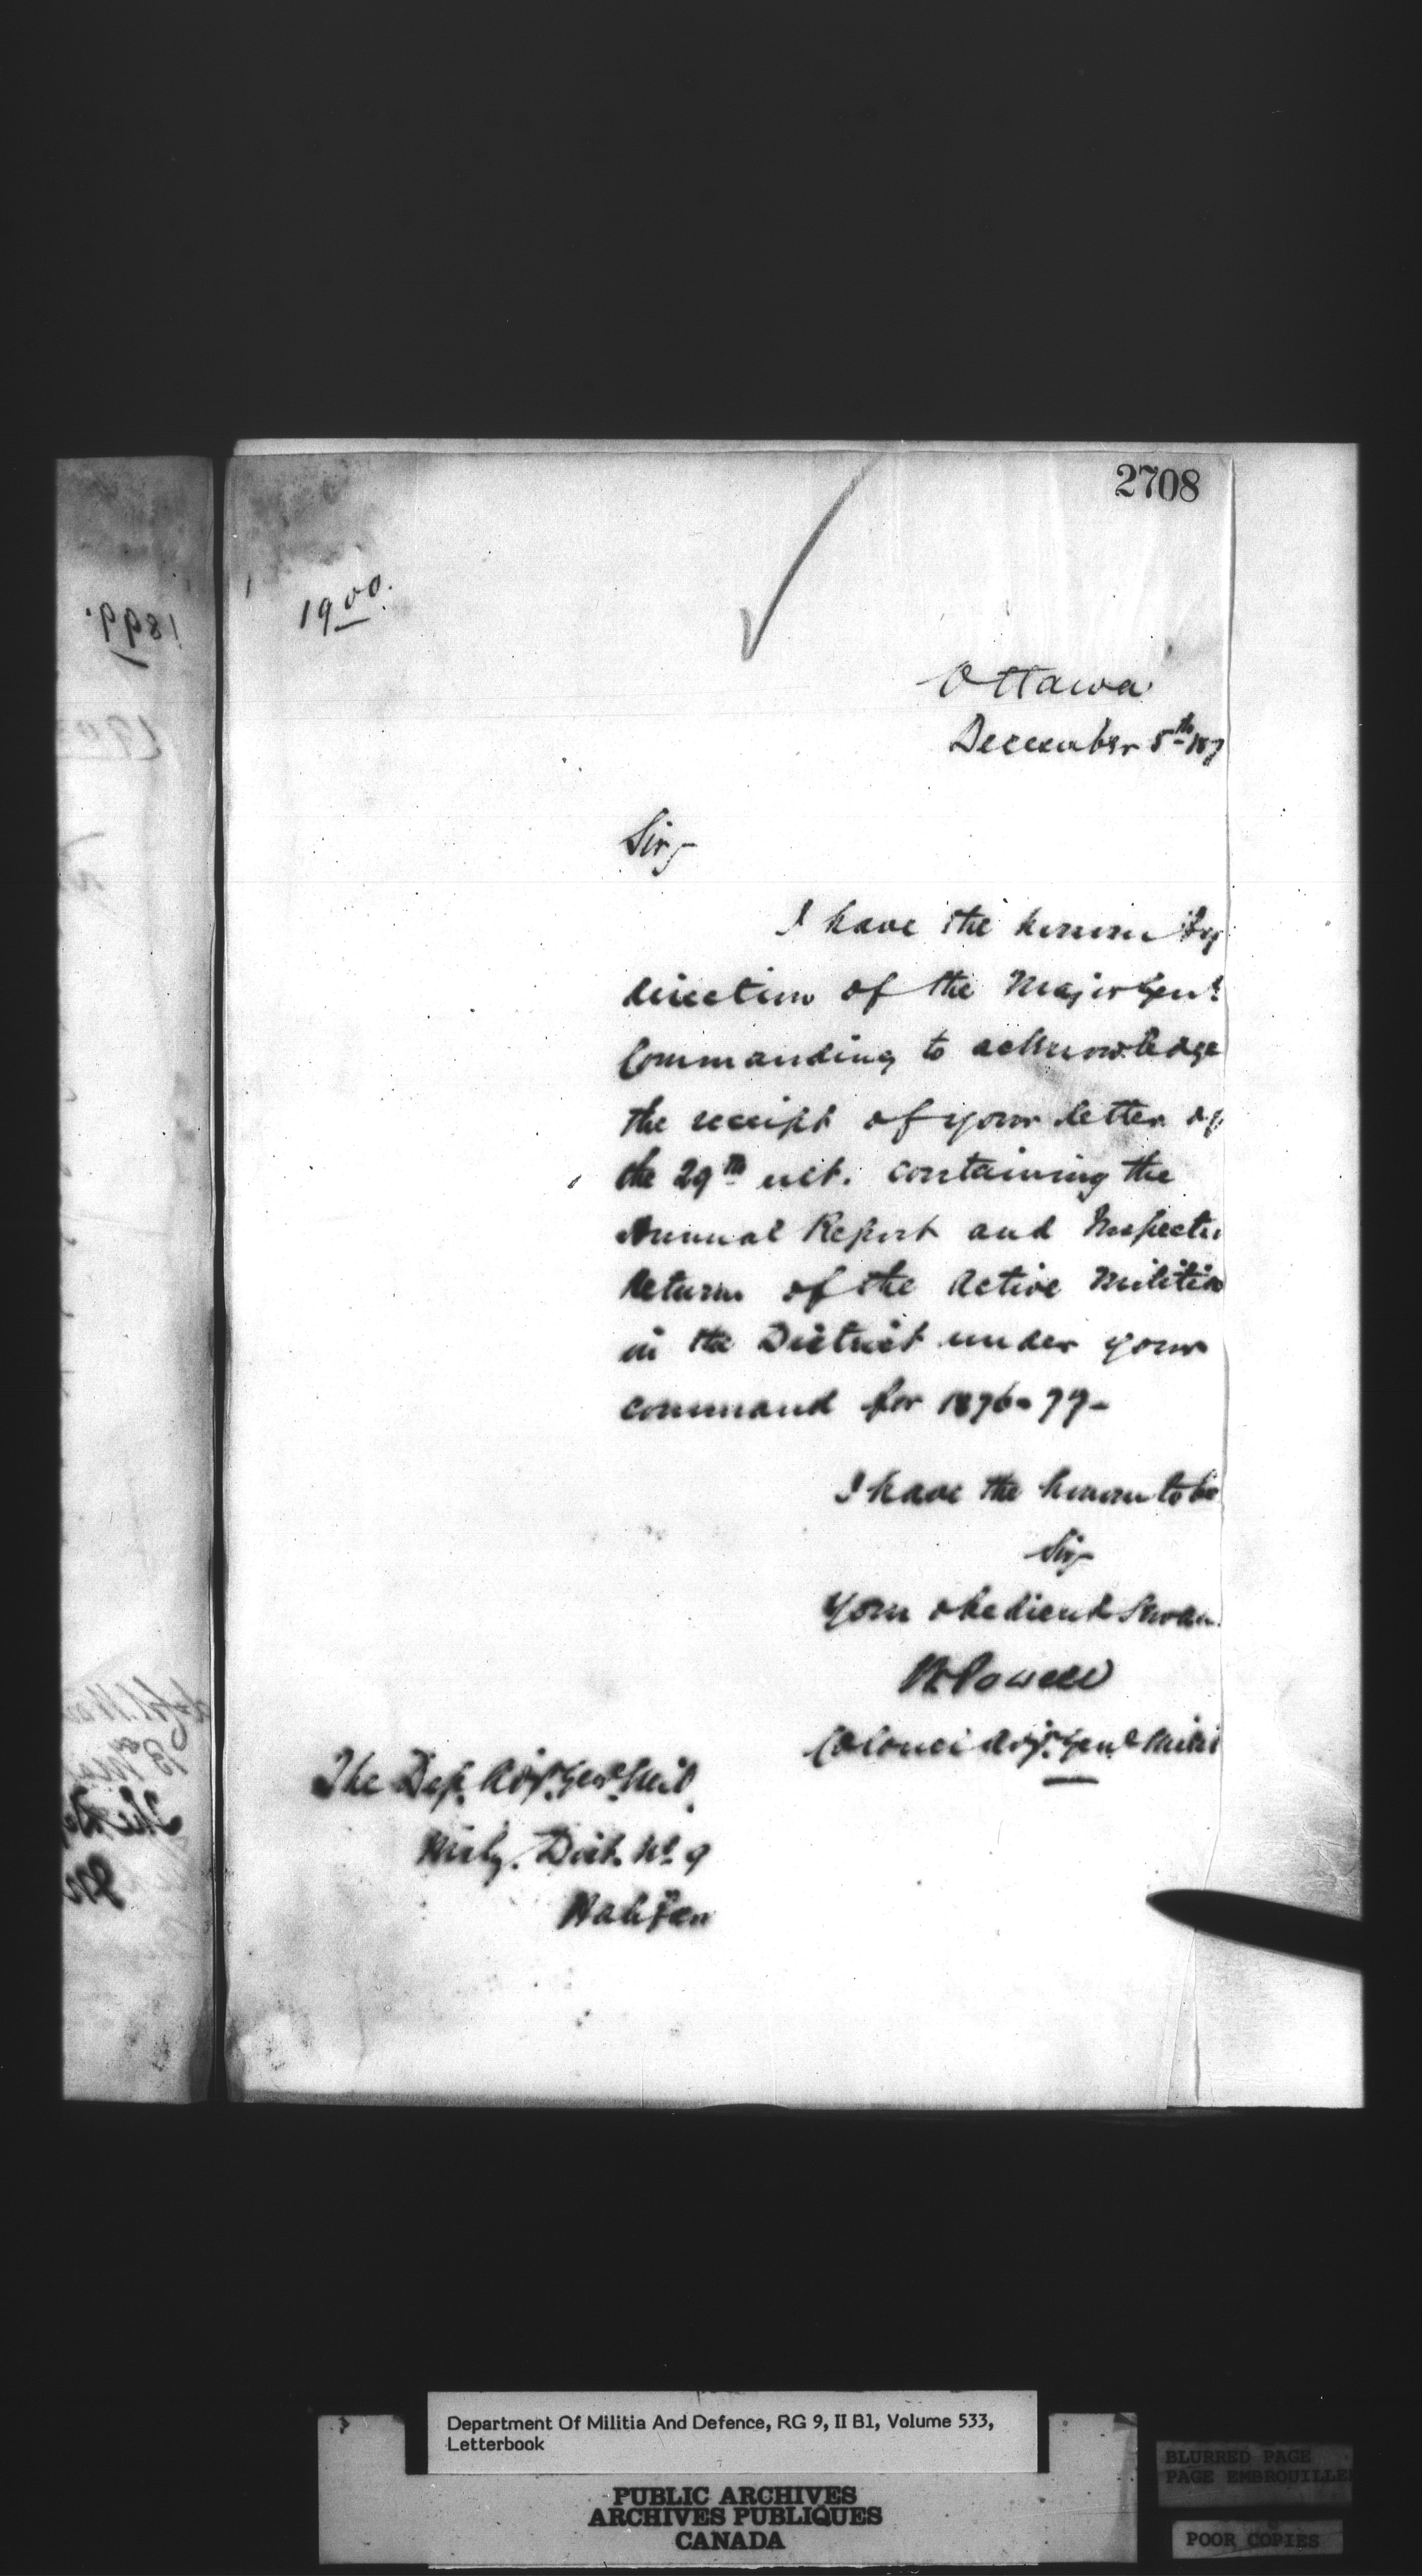 2708
1900.
Ottawa
December 5th 187
Sir,
I have the honour by
direction of the Major Genl
Commanding to acknowledge
the receipt of your letter of
the 29th ult. containing the
Annual Report and Inspectio
Return of the Active Militia
in the District under your
command for 1876-77-
I have the honour to be
Sir
Your obedient Servan
W Powell
Colonel Adjt. Genl Militi
The Dep. Adjt. Genl. Mil.
Mily. Dist. No. 9
Halifax
1899.
Department Of Militia And Defence, RG 9, II B1, Volume 533,
Letterbook
PUBLIC ARCHIVES
ARCHIVES PUBLIQUES
CANADA
BLURRED PAGE
PAGE EMBROUILLE
POOR COPIES